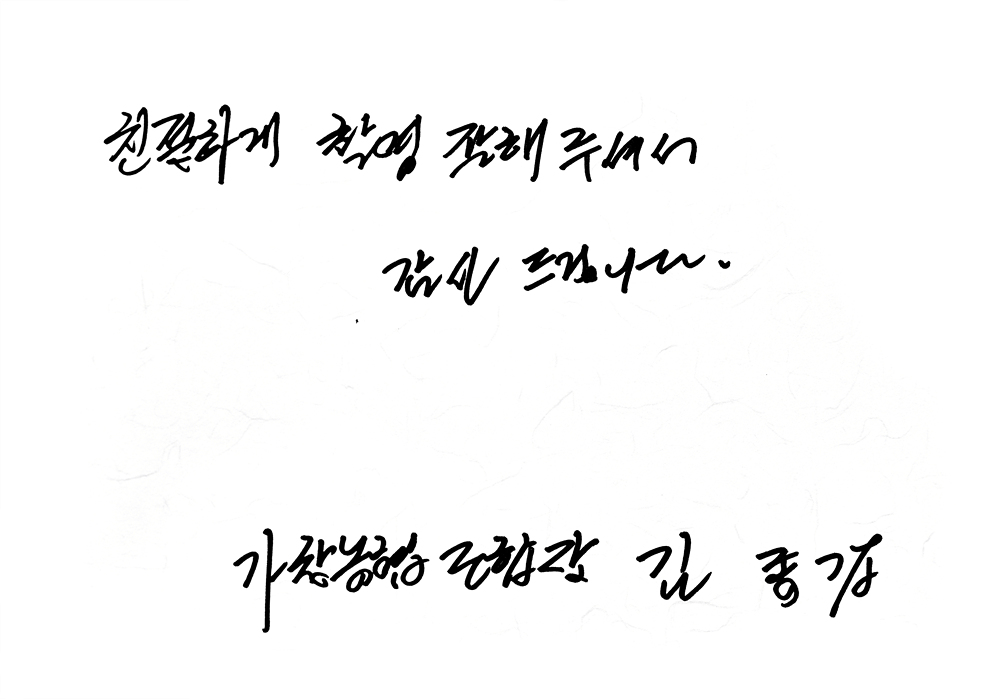 친절하게 촬영 잘해 주셔서
감사 드립니다.
가창농협 조합장 김